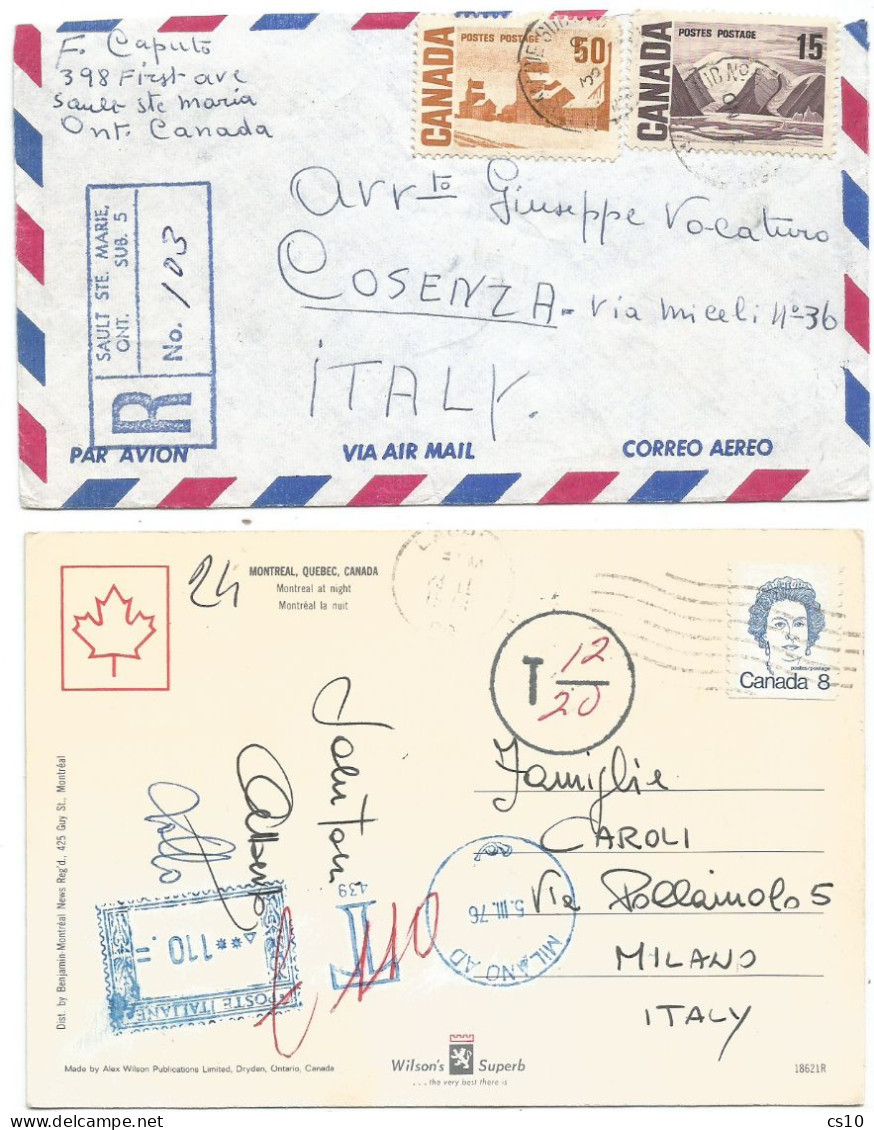 F. Caputo
398 First ave
Sault ste maria
Ont. Canada
CANADA
POSTES POSTAGE
50
CANADA
POSTES POSTAGE
15
SAULT STE. MARIE,
ONT. SUB. 5
R
No. 103
Avv to Giuseppe Vocaturo
COSENZA - via miceli n° 36
ITALY.
PAR AVION VIA AIR MAIL CORREO AEREO
24
MONTREAL, QUEBEC, CANADA
Montreal at night
Montréal la nuit
T 12
20
postes/postage
Canada 8
Famiglie
CAROLI
Via Pollaiuolo 5
MILANO
ITALY
Dist. by Benjamin-Montréal News Reg'd., 425 Guy St., Montréal
Alberto
439
T
MILANO AD
5.III.76
110.=
POSTE ITALIANE
110
Made by Alex Wilson Publications Limited, Dryden, Ontario, Canada
Wilson's Superb
...the very best there is
18621R
cs10